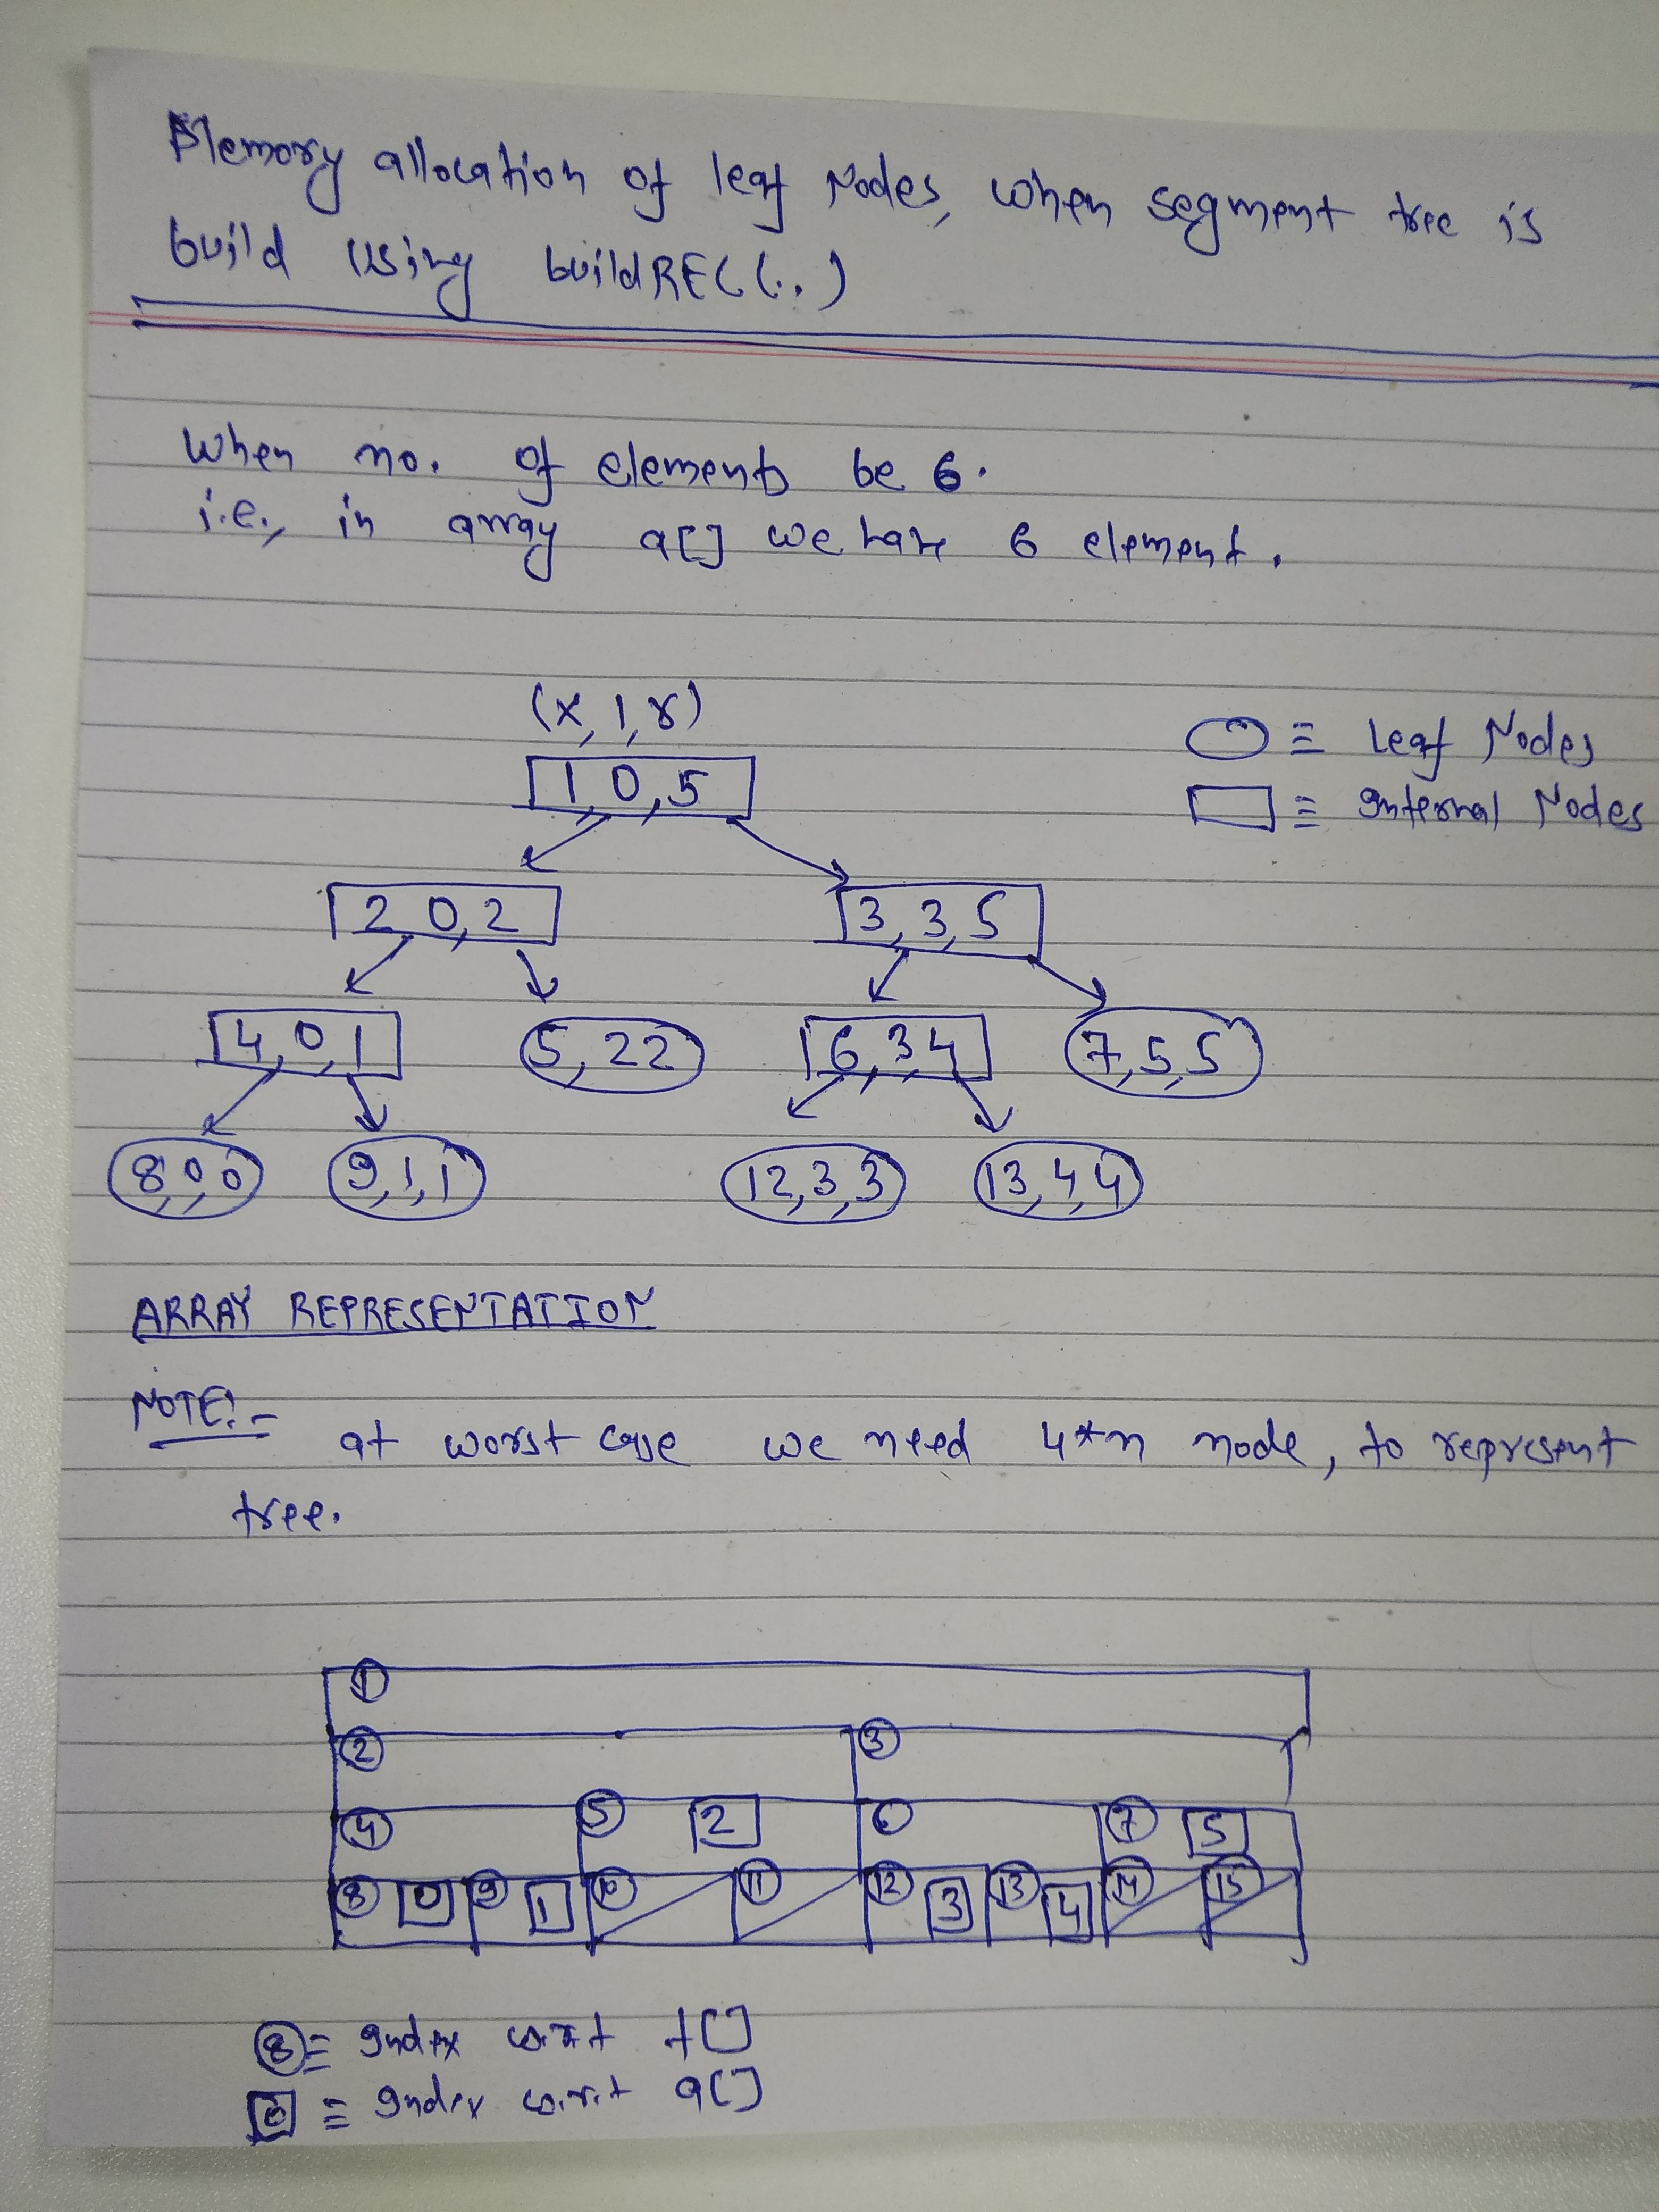 Memory allocation of leaf Nodes, when segment tree is
build using buildREC(..)
When no. of elements be 6.
i.e., in array a[] we have 6 element.
(x, l, r)
1,0,5
2,0,2
3,3,5
4,0,1
5,22
6,3,4
7,5,5
8,0,0
9,1,1
12,3,3
13,4,4
○ ≡ leaf Nodes
□ ≡ Internal Nodes
ARRAY REPRESENTATION
NOTE:- at worst case we need 4*n node, to represent
tree.
1
2 3
4 5 2 6 7 5
8 0 9 1 10 11 12 3 13 4 14 15
8 ≡ Index w.r.t t[]
≡ Index w.r.t a[]